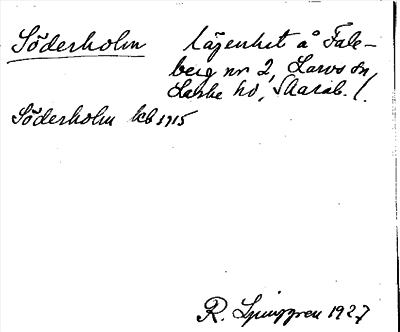 Söderholm lägenhet å Fale-
berg nr 2, Larvs sn,
Laske hd, Skarab. l.
Söderholm kb 1915
R. Ljunggren 1927